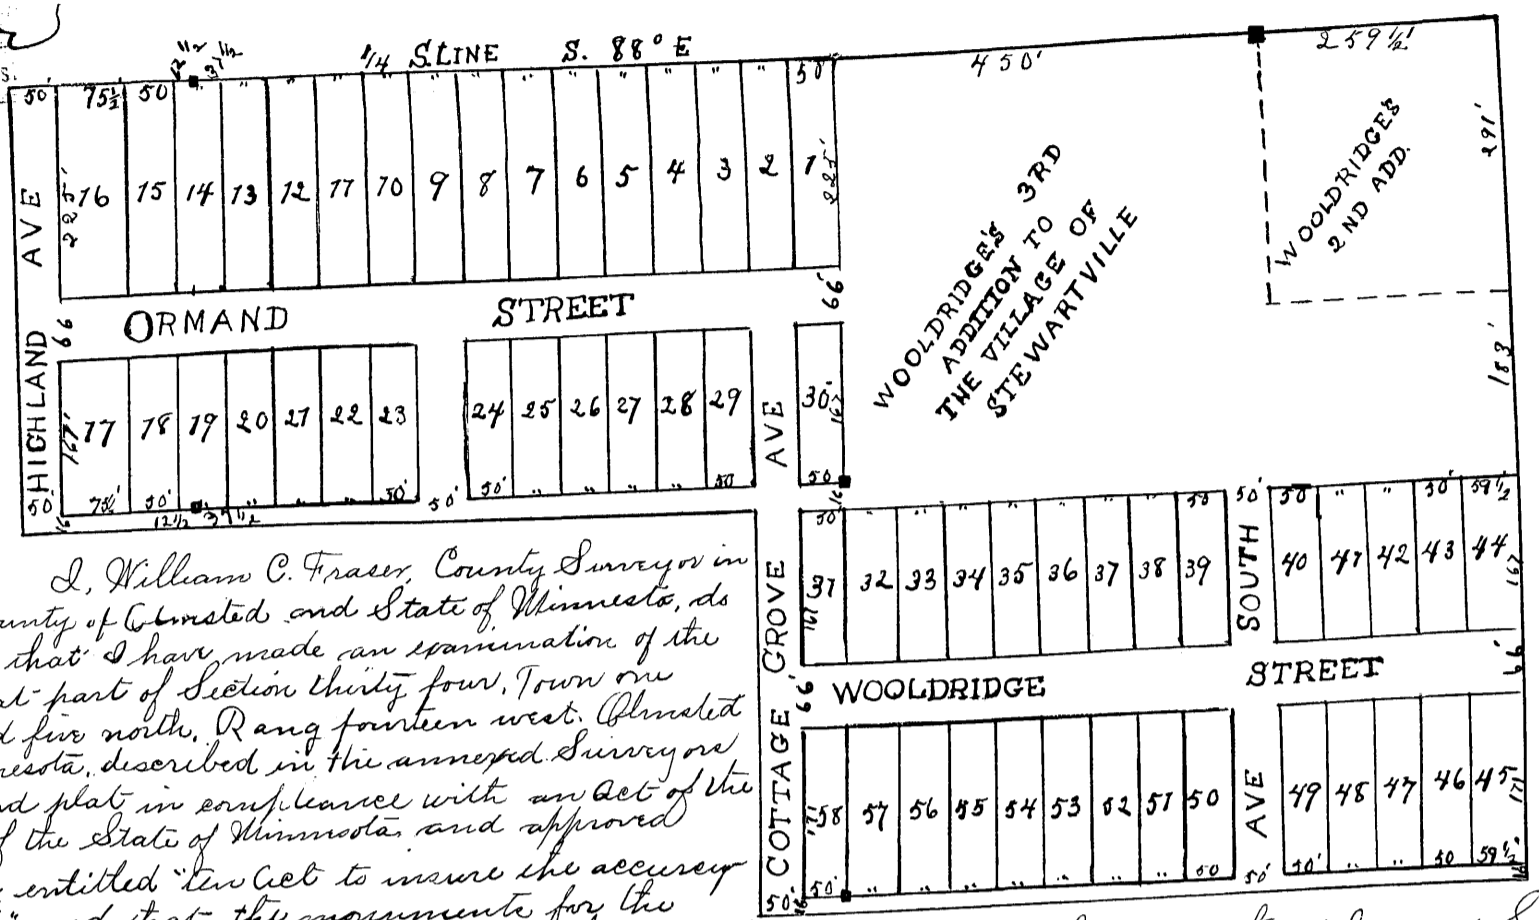 S.
12 1/2 37 1/2
1/4 S. LINE S. 88° E
450'
259 1/2'
50' 75 1/2 50 " " " " " " " " " " " 50'
16 15 14 13 12 11 10 9 8 7 6 5 4 3 2 1
225'
225'
291'
WOOLDRIDGE'S
2ND ADD.
WOOLDRIDGE'S 3RD
ADDITION TO
THE VILLAGE OF
STEWARTVILLE
HIGHLAND AVE
66
ORMAND STREET
66'
183'
17 18 19 20 21 22 23 24 25 26 27 28 29 30
167'
167'
50' 16' 75 1/2' 50' 12 1/2 37 1/2 " " " 50' 50' 50' " " " " 50 50'
16'
COTTAGE GROVE AVE
50' " " " " " " " 50 50' 50 " " 50' 59 1/2
31 32 33 34 35 36 37 38 39 40 41 42 43 44
167
167
SOUTH AVE
66'
WOOLDRIDGE STREET
66'
58 57 56 55 54 53 52 51 50 49 48 47 46 45
171'
171'
50' 16' 50' " " " " " " " 50 50' 50' " " 50 59 1/2'
16'
I, William C. Fraser, County Surveyor in
unty of Olmsted and State of Minnesota, do
that I have made an examination of the
at part of Section thirty four, Town one
d five north, Rang fourteen west. Olmsted
nesota, described in the annexed Surveyors
nd plat in compleance with an act of the
f the State of Minnesota and approved
entitled "An Act to insure the accuracy
and that the monuments for the